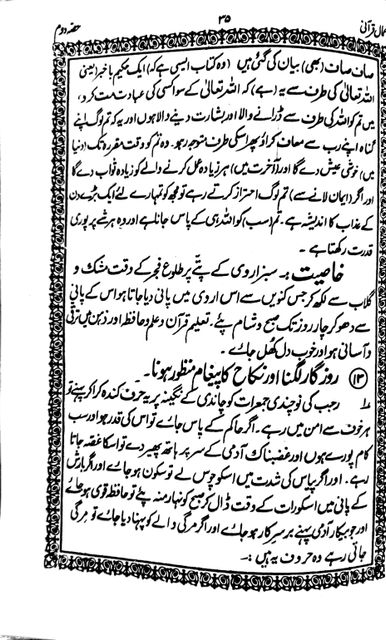 اعمال قرآنی ۳۵ حصہ دوم
صاف صاف (بھی) بیان کی گئی ہیں (وہ کتاب ایسی ہے کہ) ایک حکیم باخبر (یعنی
اللہ تعالیٰ کی طرف سے یہ (ہے) کہ اللہ تعالیٰ کے سوا کسی کی عبادت مت کرو،
میں تم کو اللہ کی طرف سے ڈرانے والا اور بشارت دینے والا ہوں اور یہ کہ تم لوگ اپنے
گناہ اپنے رب سے معاف کراؤ پھر اسکی طرف متوجہ رہو۔ وہ تم کو وقت مقررہ تک (دنیا
میں) خوشی عیش دے گا اور (آخرت میں) ہر زیادہ عمل کرنے والے کو زیادہ ثواب دے گا
اور (ایمان لانے سے) تم لوگ احتراز کرتے رہے تو مجھ کو تمہارے لئے ایک بڑے دن
کے عذاب کا اندیشہ ہے۔ تم (سب) کو اللہ ہی کے پاس جانا ہے اور وہ ہر شے پر پوری
قدرت رکھتا ہے۔
خاصیت :۔ سبز اروی کے پتّے پر طلوع فجر کے وقت مشک و
گلاب سے لکھ کر جس کنویں سے اس اروی میں پانی دیا جاتا ہو اس کے پانی
سے دھو کر چار روز تک صبح و شام پئے۔ تعلیم قرآن و علم و حافظہ اور ذہن میں ترقی
و آسانی ہو اور خوب دل کھل جائے۔
(۱۳) روزگار لگنا اور نکاح کا پیغام منظور ہونا۔
۱۔ رجب کی نوچندی جمعرات کو چاندی کے نگینہ پر یہ حرف کندہ کرا کر پہنے تو
ہر خوف سے امن میں رہے۔ اگر حاکم کے پاس جائے تو اس کی قدر ہو اور سب
کام پورے ہوں اور غضبناک آدمی کے سر پر ہاتھ پھیر دے تو اسکا غصہ جاتا
رہے۔ اور اگر پیاس کی شدت میں اسکو چوس لے تو سکون ہو جائے اور اگر بارش
کے پانی میں اسکو رات کے وقت ڈال کر صبح کو نہار منہ پئے تو حافظہ قوی ہو جائے
اور جو بیکار آدمی پہنے بر سر کار ہو جائے اور اگر مرگی والے کو پہنا دیا جائے تو مرگی
جاتی رہے وہ حروف یہ ہیں :۔